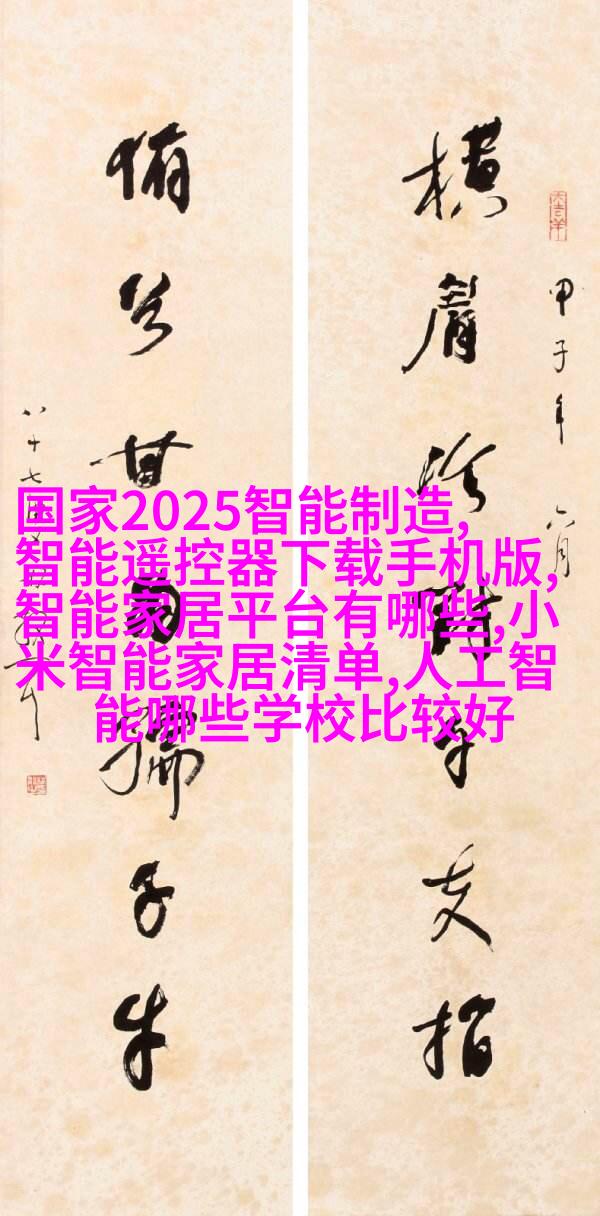 横眉冷對千夫指
俯首甘為孺子牛
甲子年六月
八十七
国家2025智能制造,
智能遥控器下载手机版,
智能家居平台有哪些,小
米智能家居清单,人工智
能哪些学校比较好